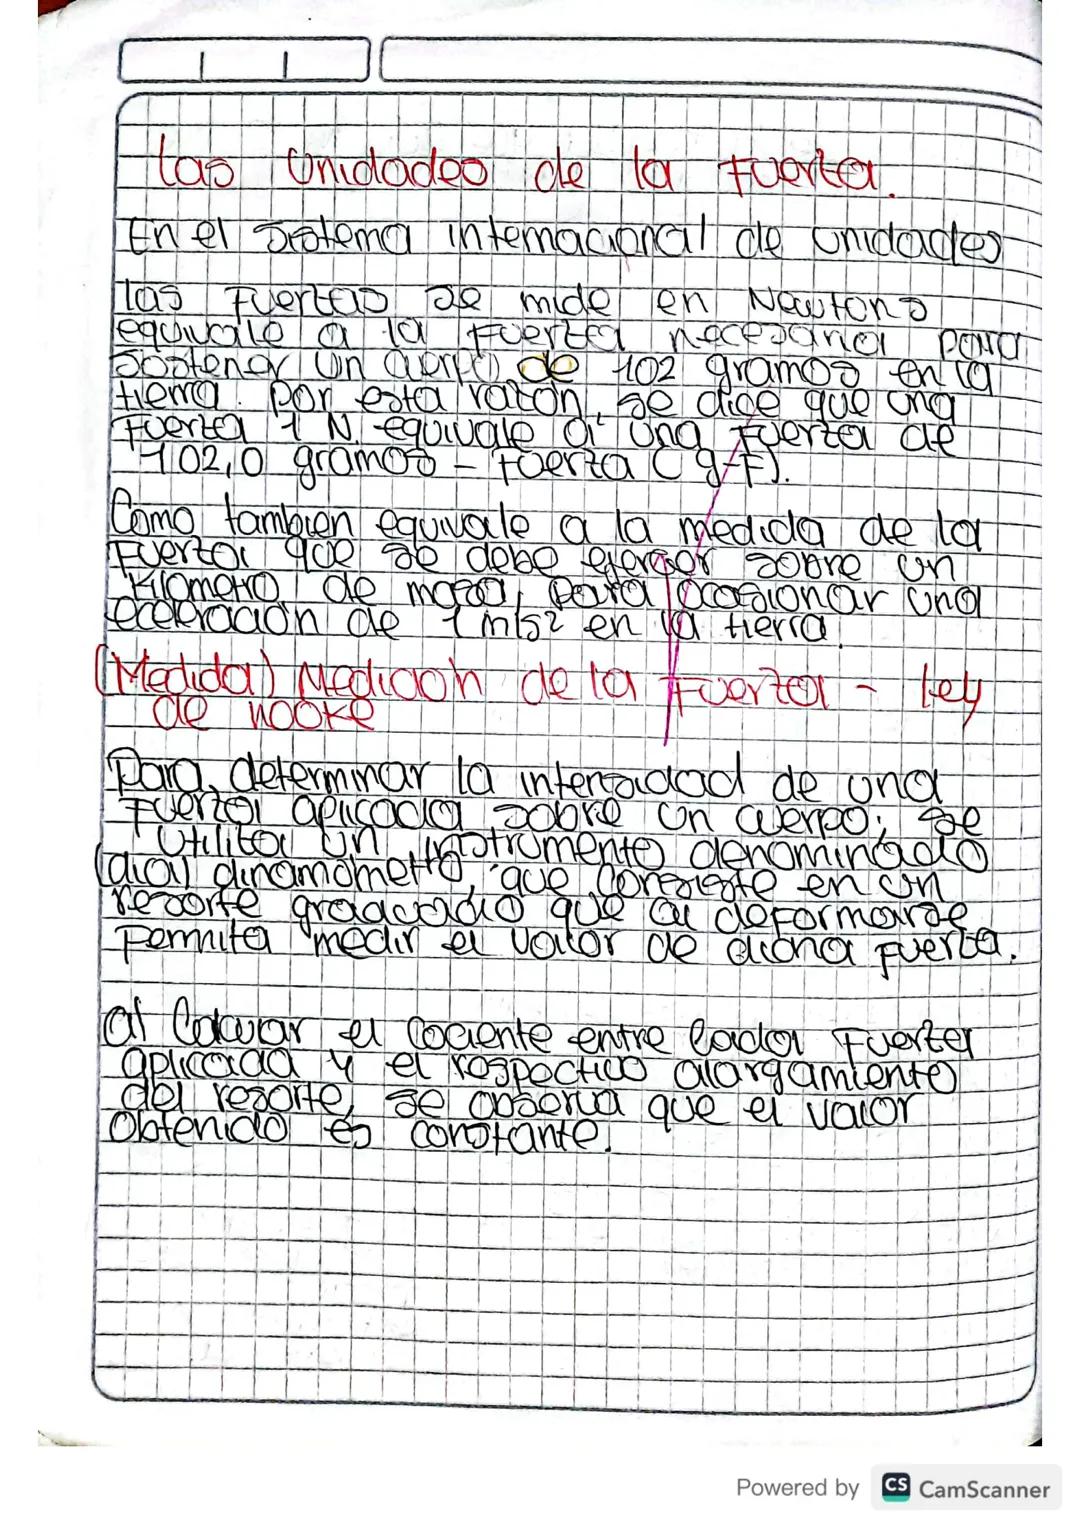 Las Unidades de la Fuerza.
En el sistema internacional de unidades
las Fuerzas se mide en Newtons
equivale a la fuerza necesaria para
Sostener un cuerpo de 102 gramos en la
tierra. por esta razón, se dice que una
Fuerza 1 N. equivale a una Fuerza de
102,0 gramos - Fuerza (g-F).
Como tambien equivale a la medida de la
Fuerza que se debe ejerser sobre un
Kilometro de masa, para ocasionar una
aceleración de 1 m/s2 en la tierra
(Medida) Medicion de la Fuerza - ley
de hooke
Para determinar la intensidad de una
Fuerza aplicada sobre un cuerpo; se
Utiliza un instrumento denominado
dinamometro, que consiste en un
resorte graduado que al deformarse
permita medir el valor de dicha fuerza.
al Calcular el Cociente entre Cada Fuerza
aplicada y el respectivo alargamiento
del resorte, se observa que el valor
Obtenido es constante.
Powered by CS CamScanner